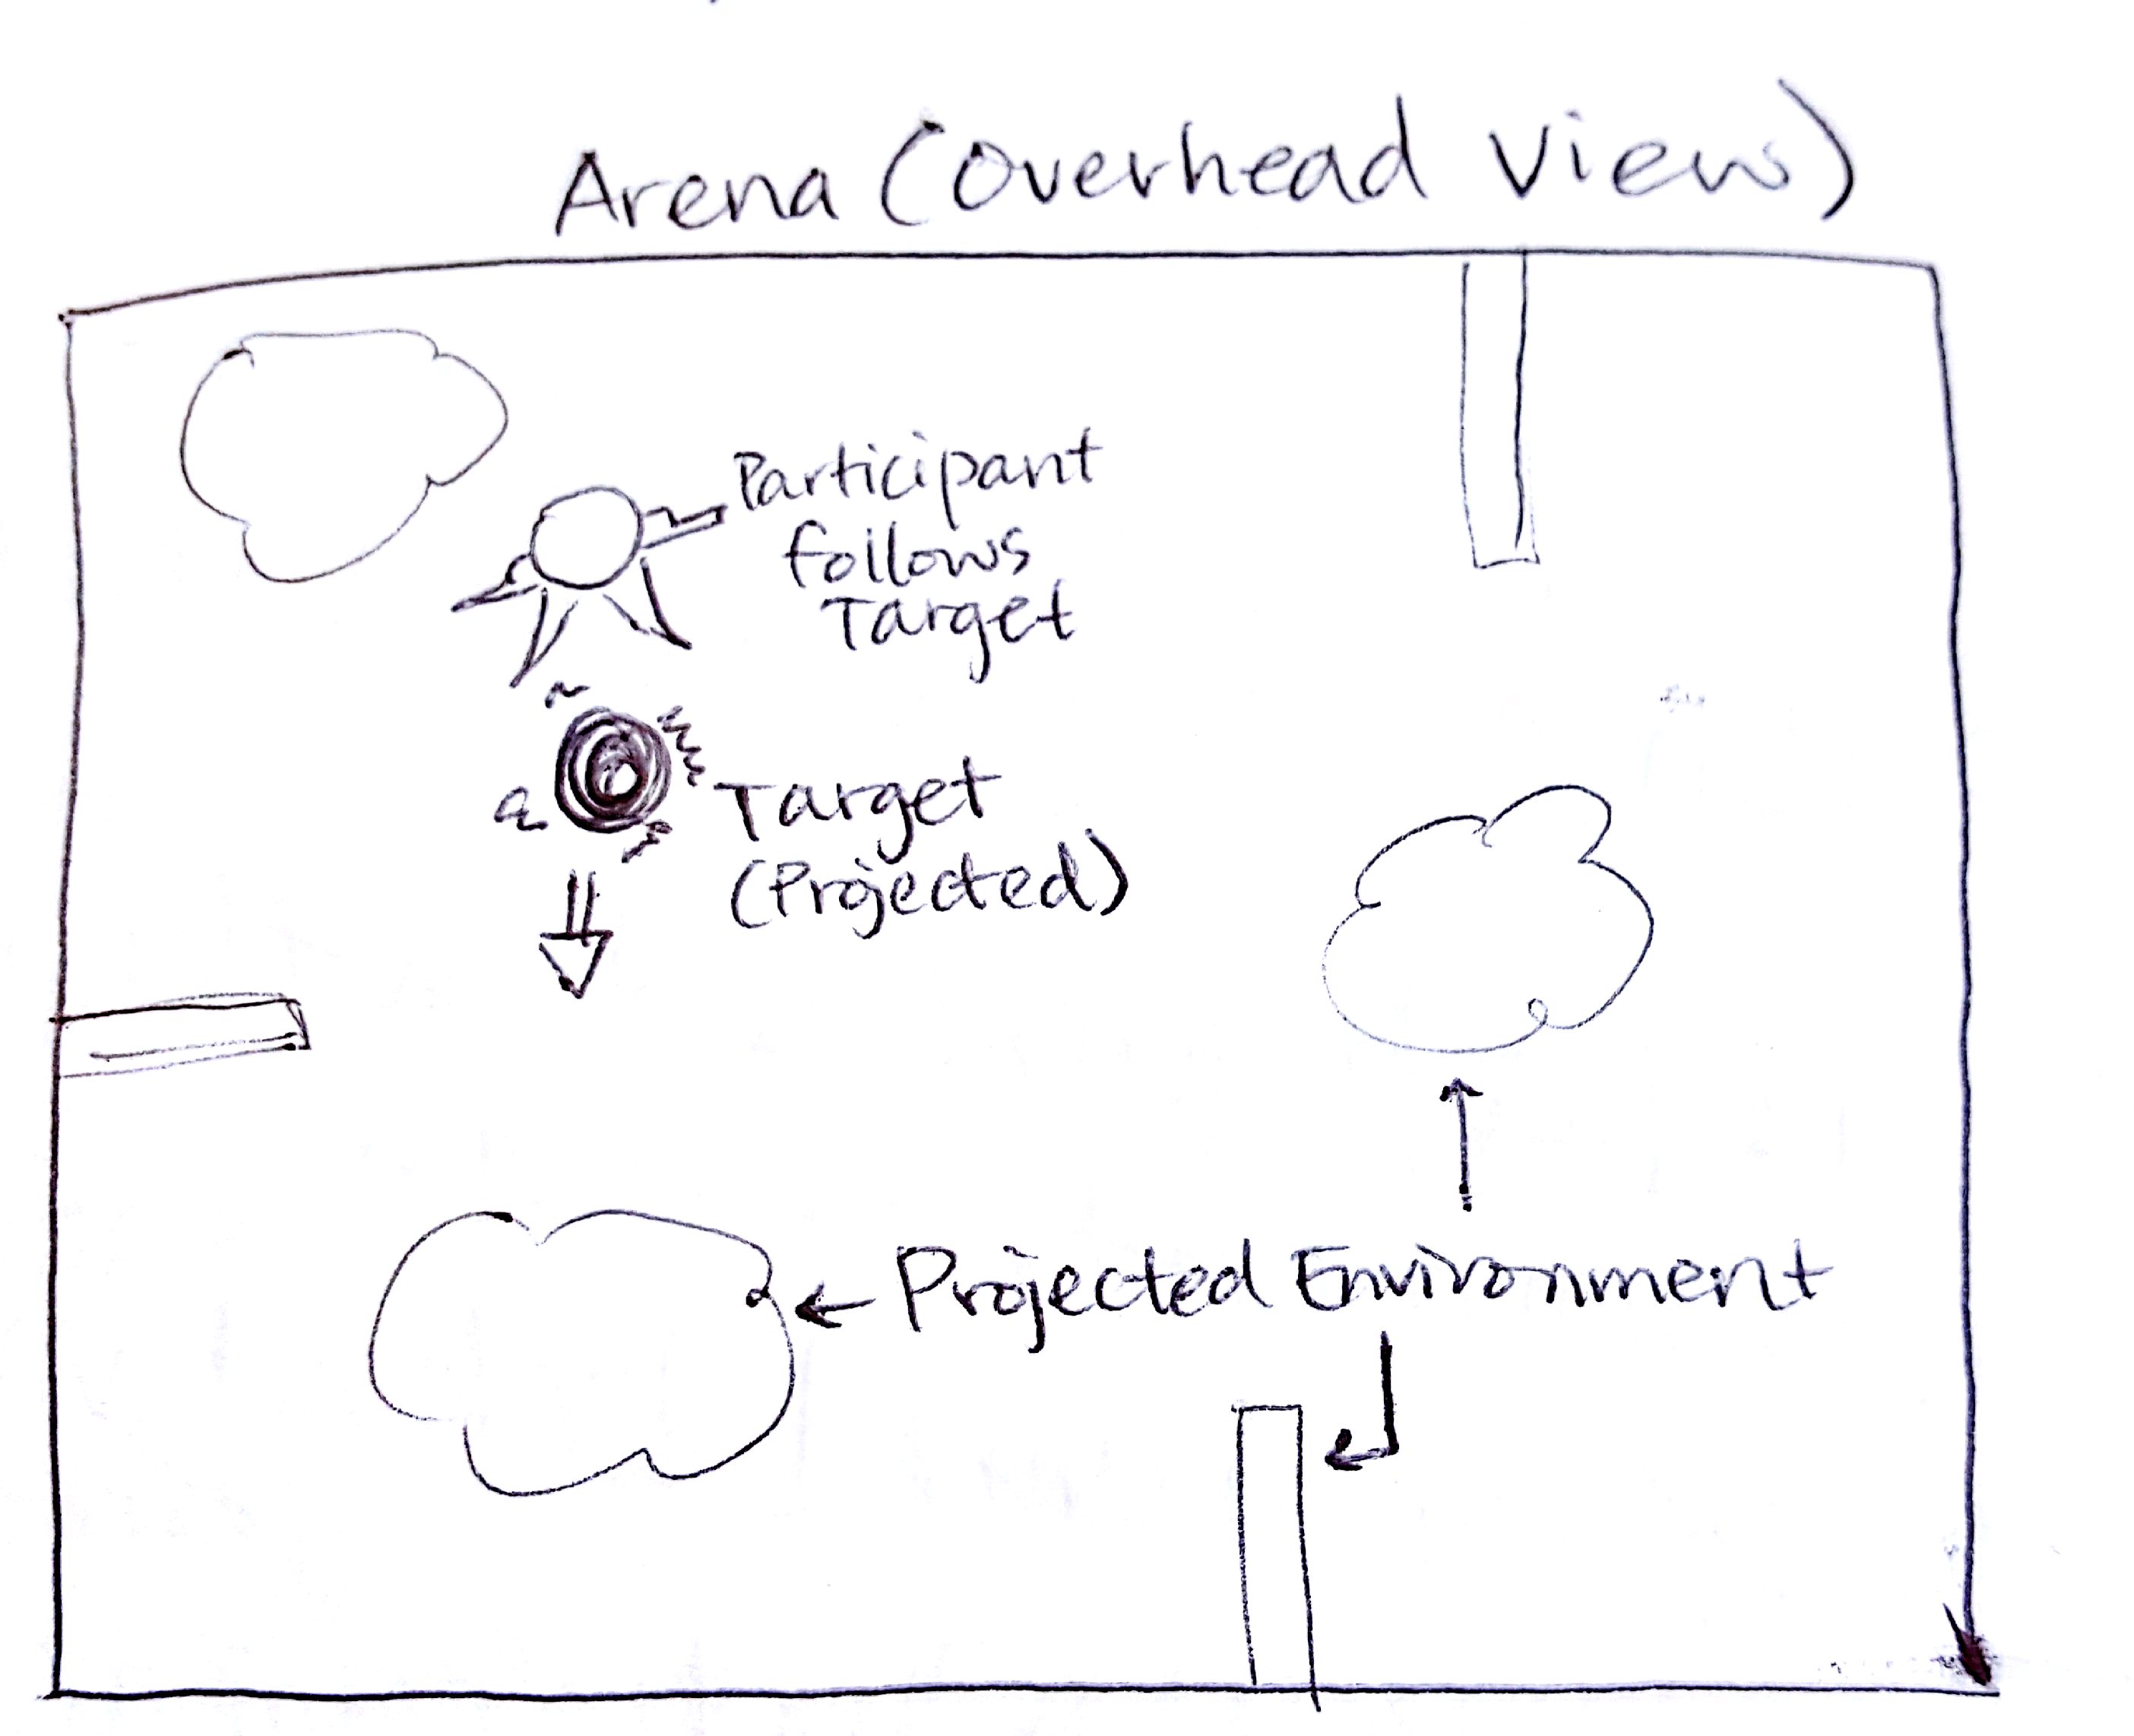 Arena (Overhead View)
Participant
follows
Target
Target
(Projected)
Projected Environment